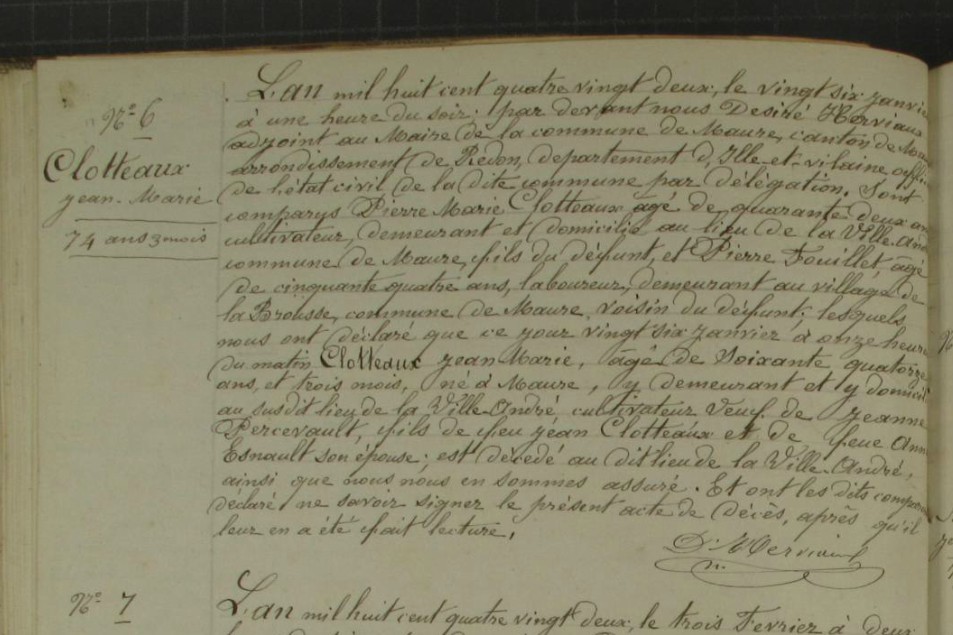 Nº 6
Clotteaux
jean-Marie
74 ans 3 mois
L'an mil huit cent quatre vingt deux, le vingt six janvier
à une heure du soir; par devant nous Desiré Herviaux
adjoint au Maire de la commune de Maure, canton de Maure
arrondissement de Redon, departement d'Ille-et-vilaine, offi
de l'état civil de la dite commune par délégation. Sont
comparus Pierre Marie Clotteaux agé de quarante deux an
cultivateur, demeurant et domicilié au lieu de la Ville And
commune de Maure, fils du défunt, et Pierre Fouillet, âgé
de cinquante quatre ans, laboureur, demeurant au village de
la Brousse, commune de Maure, voisin du défunt; lesquels
nous ont déclaré que ce jour vingt six janvier à onze heure
du matin Clotteaux jean Marie, âgé de Soixante quatorze
ans, et trois mois, né à Maure, y demeurant et y domicil
au susdit lieu de la Ville-André, cultivateur Veuf de jeanne
Percevault, fils de feu jean Clotteaux et de feue Ann
Esnault son épouse; est décedé au dit lieu de la Ville-André,
ainsi que nous nous en sommes assuré. Et ont les dits compar
déclaré ne savoir signer le présent acte de décès, après qu'il
leur en a été fait lecture.
D. Herviaux
Nº 7
L'an mil huit cent quatre vingt deux, le trois Fevrier à deux